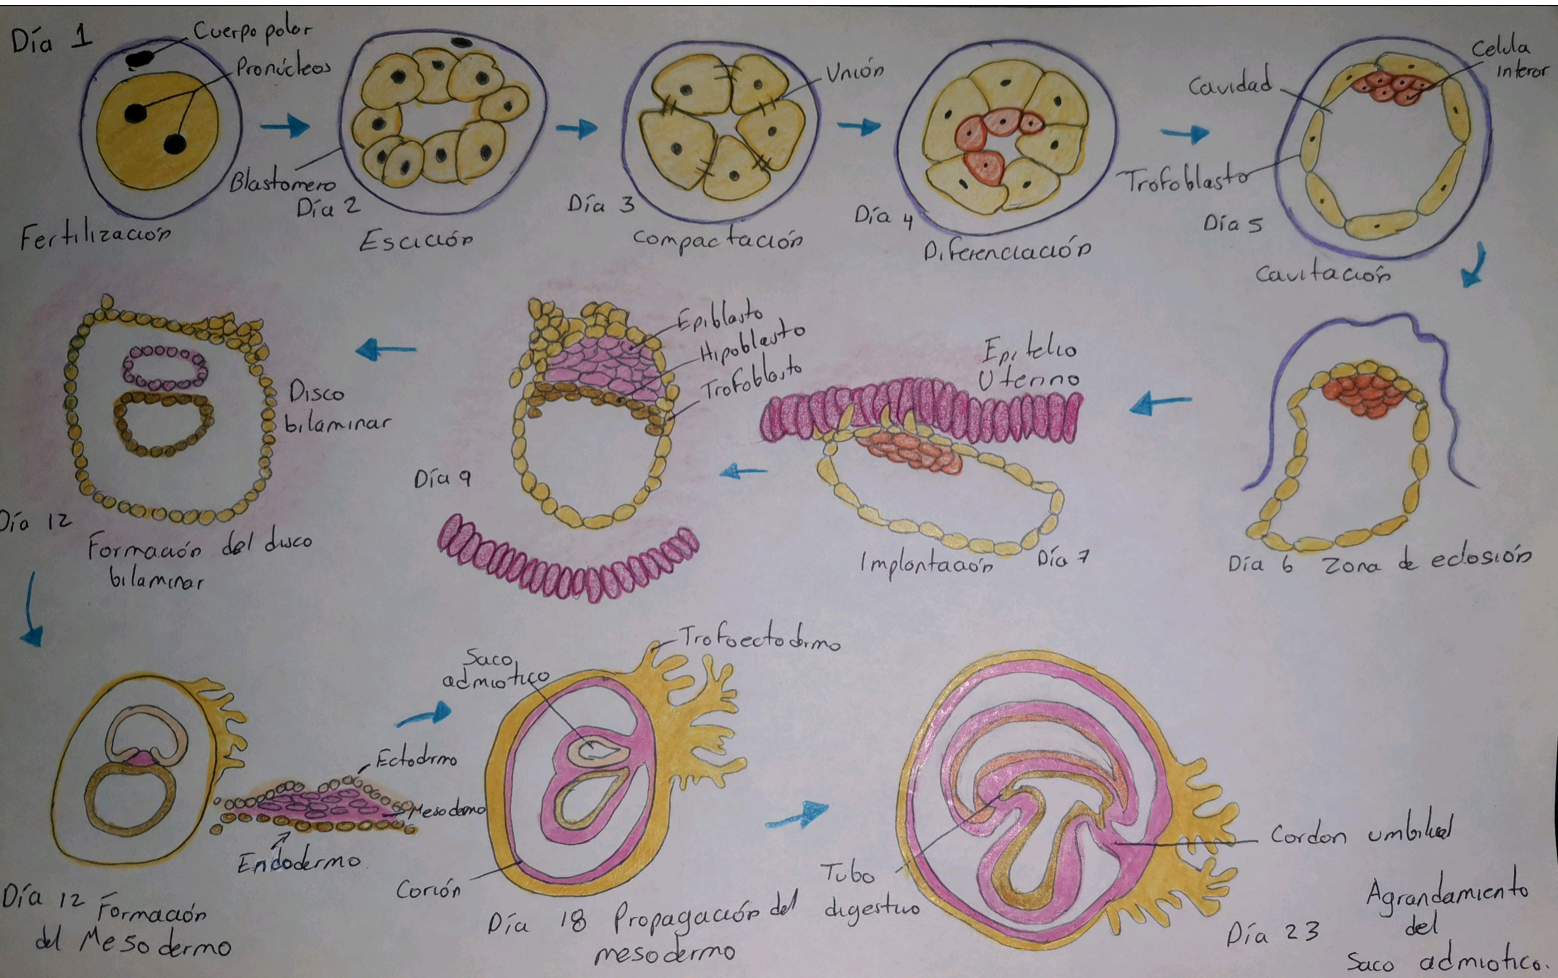 Día 1
Cuerpo polar
Pronúcleos
Fertilización
Blastomero
Día 2
Escición
Unión
Día 3
Compactación
Día 4
Diferenciación
Celula
interor
Cavidad
Trofoblasto
Día 5
Cavitación
Día 6 Zona de eclosión
Epitelio
Uterino
Implantación Día 7
Epiblasto
Hipoblasto
Trofoblasto
Día 9
Disco
bilaminar
Día 12
Formación del disco
bilaminar
Ectodermo
Mesodermo
Endodermo
Día 12 Formación
del Mesodermo
Trofoectodermo
Saco
admiotico
Corión
Día 18 Propagación del
mesodermo
Tubo
digestivo
Cordon umbilical
Día 23
Agrandamiento
del
Saco admiotico.